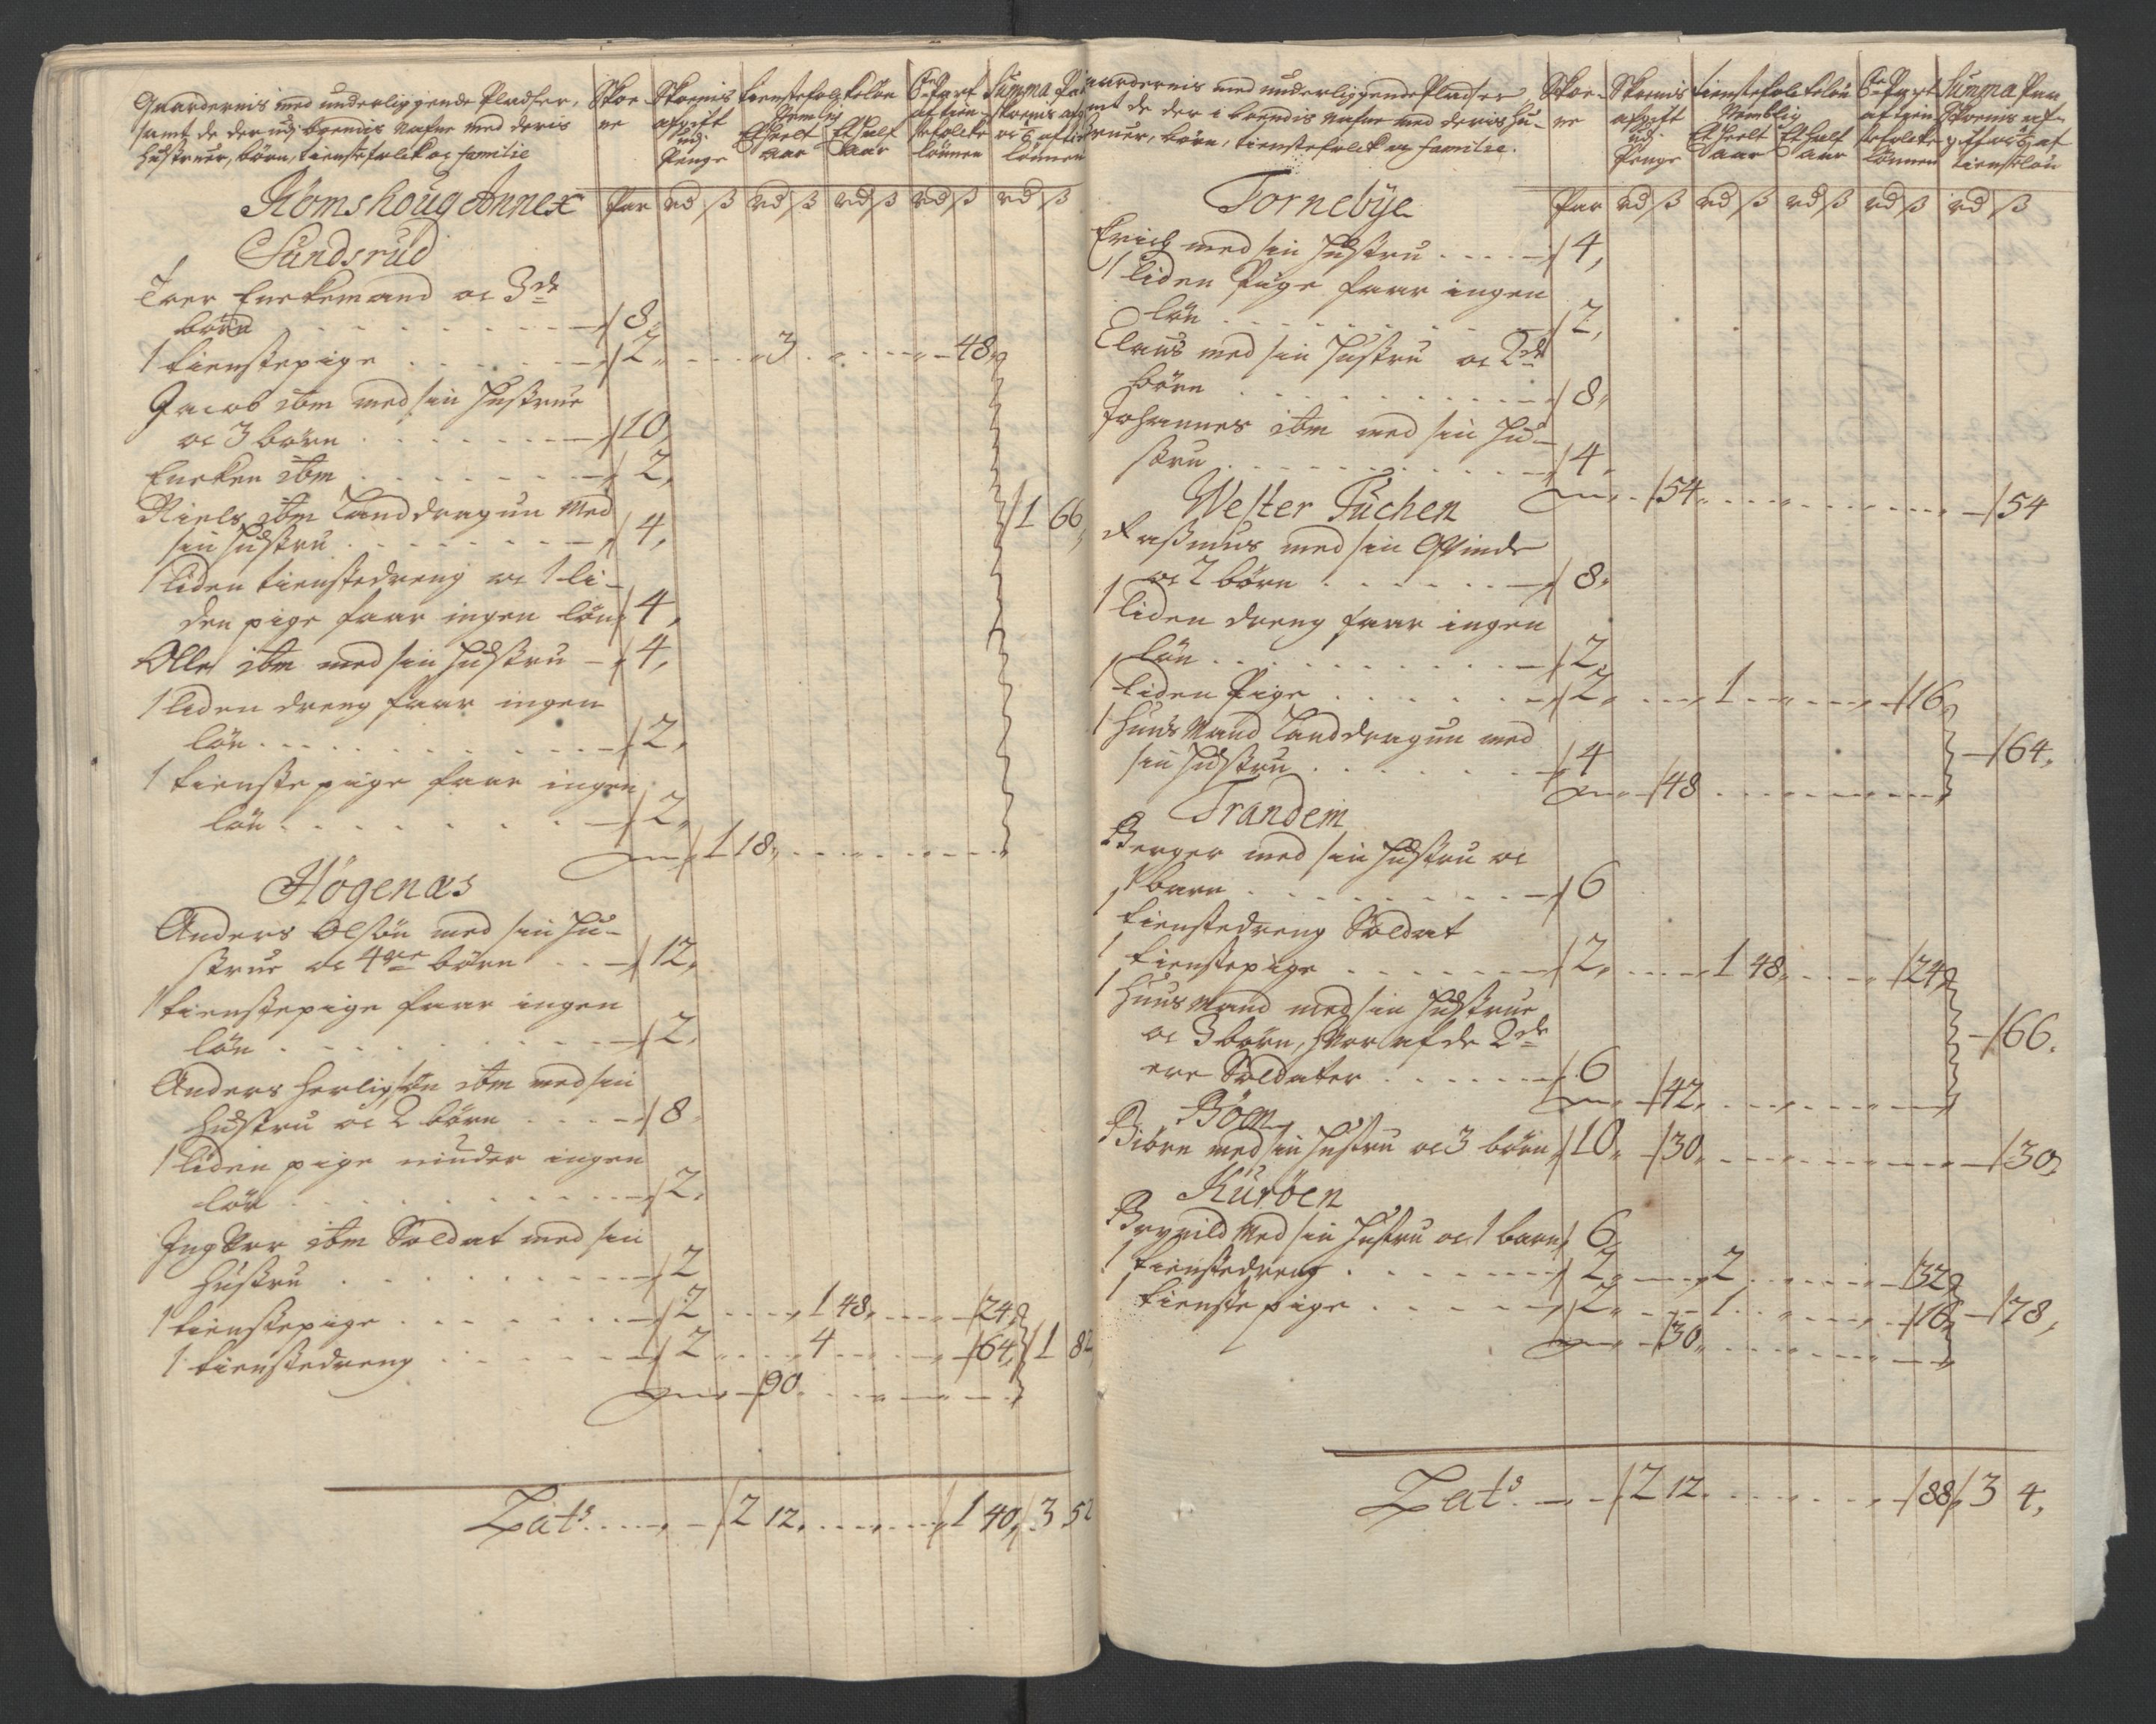 Gaardernis med underliggende Pladser,
samt de der udj boendis Nafne med deris
Hustruer, börn, tienstefolck oc familie
Skoe
ne
Skoenis
afgift
udj
Penge
tienstefolckelön
Nemlig
Et heelt
Aar
Et half
Aar
6te Part
af tien
stefolcke
lönnen
Summa Par
Skoenis afg
oc 6 af tien
lönnen
Römshoug Annex
Par rd ß rd ß rd ß rd ß rd ß
Sundsrud
Iver Enckemand oc 3de
börn 8
1 tienstepige 2 3 48
Jacob ibm med sin Hustrue
oc 3 börn 10
Encken ibm 2
Niels ibm Landdragun med
sin Hustru 4
1 66
1 liden tienstedreng oc 1 li-
den pige faar ingen lön 4
Olle ibm med sin Hustru 4
1 liden dreng faar ingen
lön 2
1 tienstepige faar ingen
lön 2
1 18
Högenæs
Anders Olsön med sin Hu-
strue oc 4re börn 12
1 tienstepige faar ingen
lön 2
Anders Herligsön ibm med sin
Hustru oc 2 börn 8
1 liden pige niuder ingen
lön 2
Ingvor ibm Soldat med sin
Hustru 2
1 tienstepige 2 1 48 24
1 tienstedreng 2 4 64 1 8
90
Lats 2 12 1 40 3 52
aardernis med underliggende Pladser
mt de der i boendis Nafne med deris Hu-
struer, börn, tienstefolck og familie.
Skoe-
ne
Skoenis
afgift
udj
Penge
tienstefolckelön
Nemblig
Et heelt
Aar
Et half
Aar
6te Part
af tien
stefolcke
lönnen
Summa Paa
Skoenis af-
gift oc 6 af
tienstelön
Par rd ß rd ß rd ß rd ß rd ß
Tornebÿe
Erich med sin Hustru 4
1 liden Pige faar ingen
lön 2
Claus med sin Hustru oc 2de
börn 8
Johannes ibm med sin Hu-
stru 4
54 54
Wester Tuchen
Rasmus med sin Qvinde
oc 2 börn 8
1 liden dreng faar ingen
lön 2
1 liden Pige 2 1 16
1 Huus Mand Landdragun med
sin Hustru 4
64
48
Trandem
Berger med sin Hustru oc
1 barn 6
1 tienstedreng Soldat
1 tienstepige 2 1 48 24
1 Huusmand med sin Hustrue
oc 3 börn, hvor af de 2de
ere Soldater 6
66
42
Böen
Biörn med sin Hustru oc 3 börn 10 30 30
Kuröen
Brynild med sin Hustru oc 1 barn 6
1 tienstedreng 2 2 32
1 tienstepige 2 1 16 78
30
Lats 2 12 88 3 4